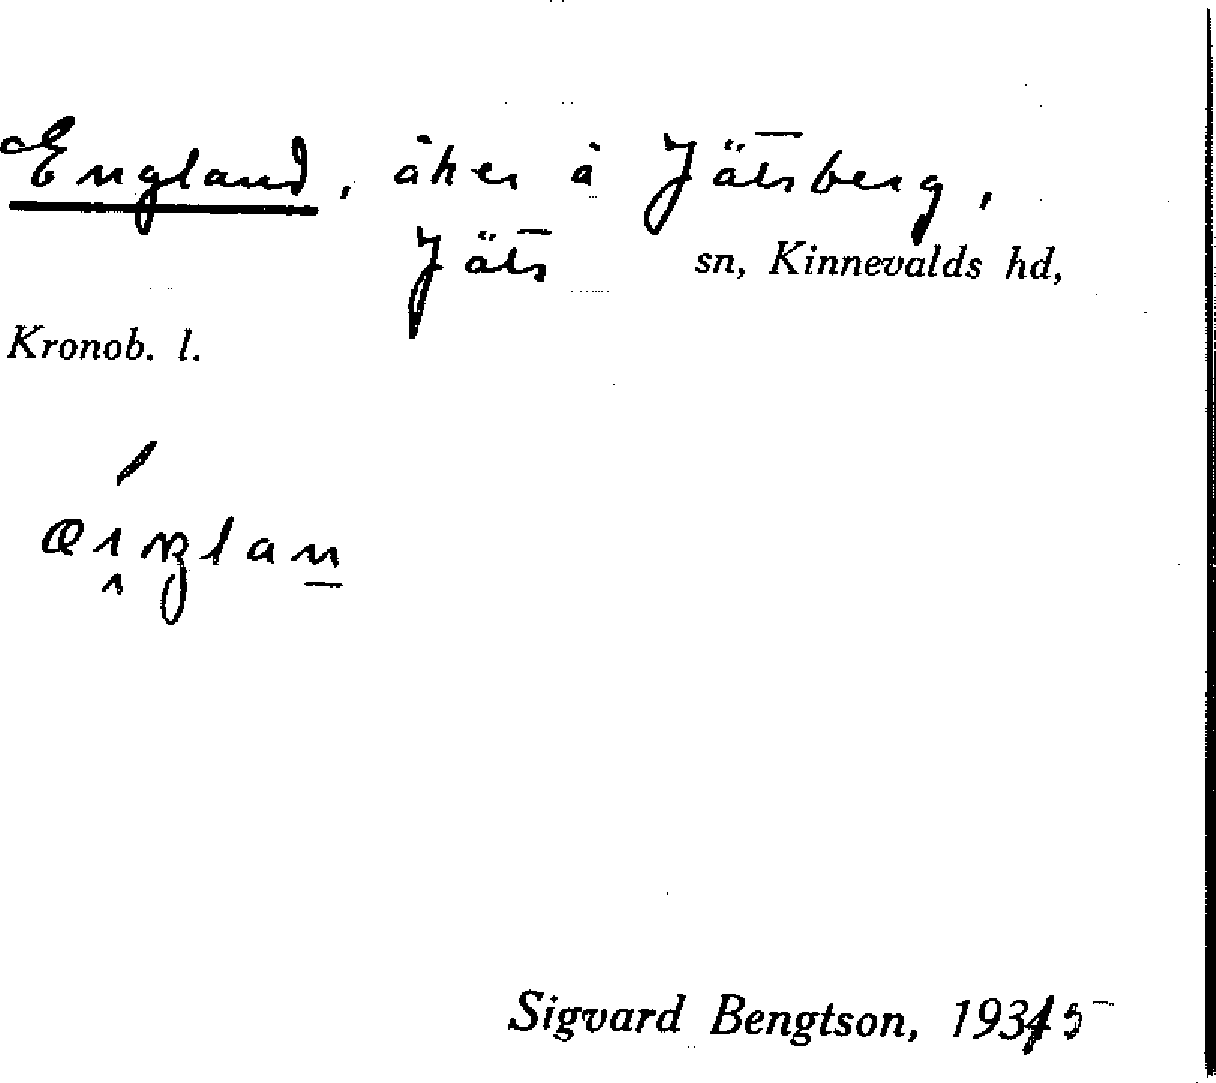 England, åker å Jätsberg,
Jäts sn, Kinnevalds hd,
Kronob. l.
Sigvard Bengtson, 1935